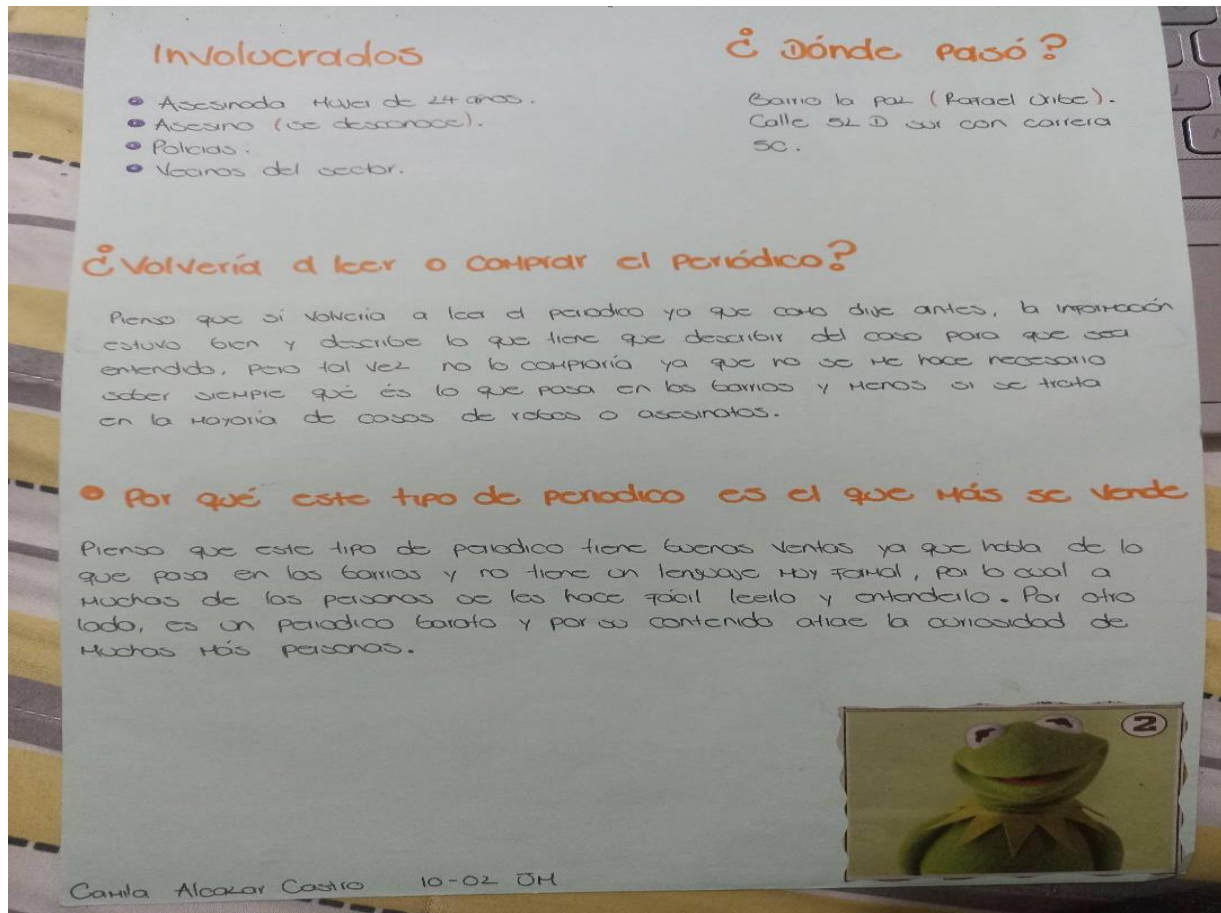 Involucrados
• Asesinada Mujer de 24 años.
• Asesino (se desconoce).
• Policías.
• Vecinos del sector.
¿Dónde pasó?
Barrio la paz (Rafael Uribe).
Calle 52 D sur con carrera
5C.
¿Volvería a leer o comprar el periódico?
Pienso que si volvería a leer el periodico ya que como dije antes, la información
estuvo bien y describe lo que tiene que describir del caso para que sea
entendido, pero tal vez no lo compraría ya que no se me hace necesario
saber siempre qué és lo que pasa en los barrios y menos si se trata
en la mayoría de casos de robos o asesinatos.
• Por qué este tipo de periodico es el que más se vende
Pienso que este tipo de periodico tiene buenas ventas ya que habla de lo
que pasa en los barrios y no tiene un lenguaje muy formal, por lo cual a
muchas de las personas se les hace fácil leerlo y entenderlo. Por otro
lado, es un periodico barato y por su contenido atrae la curiosidad de
muchas más personas.
2
Camila Alcazar Castro 10-02 JM